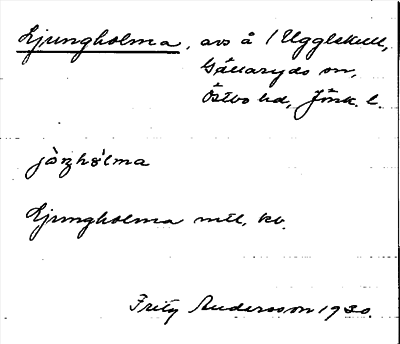 Ljungholma, avs å 1 Ugglekull,
Gällaryds sn,
Östbo hd, Jönk. l.
jòŋhòlma
Ljungholma mtl, kb.
Fritz Andersson 1930.